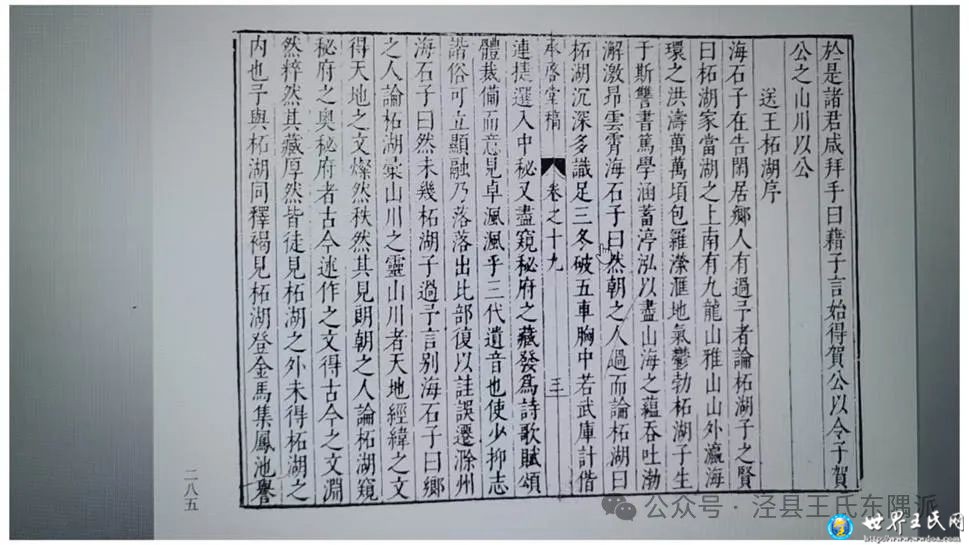 於是諸君咸拜手曰藉子言始得賀公以令子賀
公之山川以公
送王柘湖序
海石子在告閑居鄉人有過予者論柘湖子之賢
曰柘湖家當湖之上南有九龍山雅山山外瀛海
環之洪濤萬萬頃包羅瀠滙地氣鬱勃柘湖子生
于斯讐書篤學涵蓄渟泓以盡山海之蘊吞吐渤
解激昂雲霄海石子曰然朝之人過而論柘湖曰
柘湖沉深多識足三冬破五車胸中若武庫計偕
承啓堂稿
卷之十九
三
連捷選入中秘又盡窺秘府之藏發爲詩歌賦頌
體裁備而意見卓渢渢乎三代遺音也使少抑志
諧俗可立顯融乃落落出比部復以詿誤遷滁州
海石子曰然未幾柘湖子過予言別海石子曰鄉
之人論柘湖彚山川之靈山川者天地經緯之文
得天地之文燦然秩然其見朗朝之人論柘湖窺
秘府之奥秘府者古今述作之文得古今之文淵
然粹然其藏厚然皆徒見柘湖之外未得柘湖之
内也予與柘湖同釋褐見柘湖登金馬集鳳池譽
二八五
公众号·泾县王氏东隅派
世界王氏网